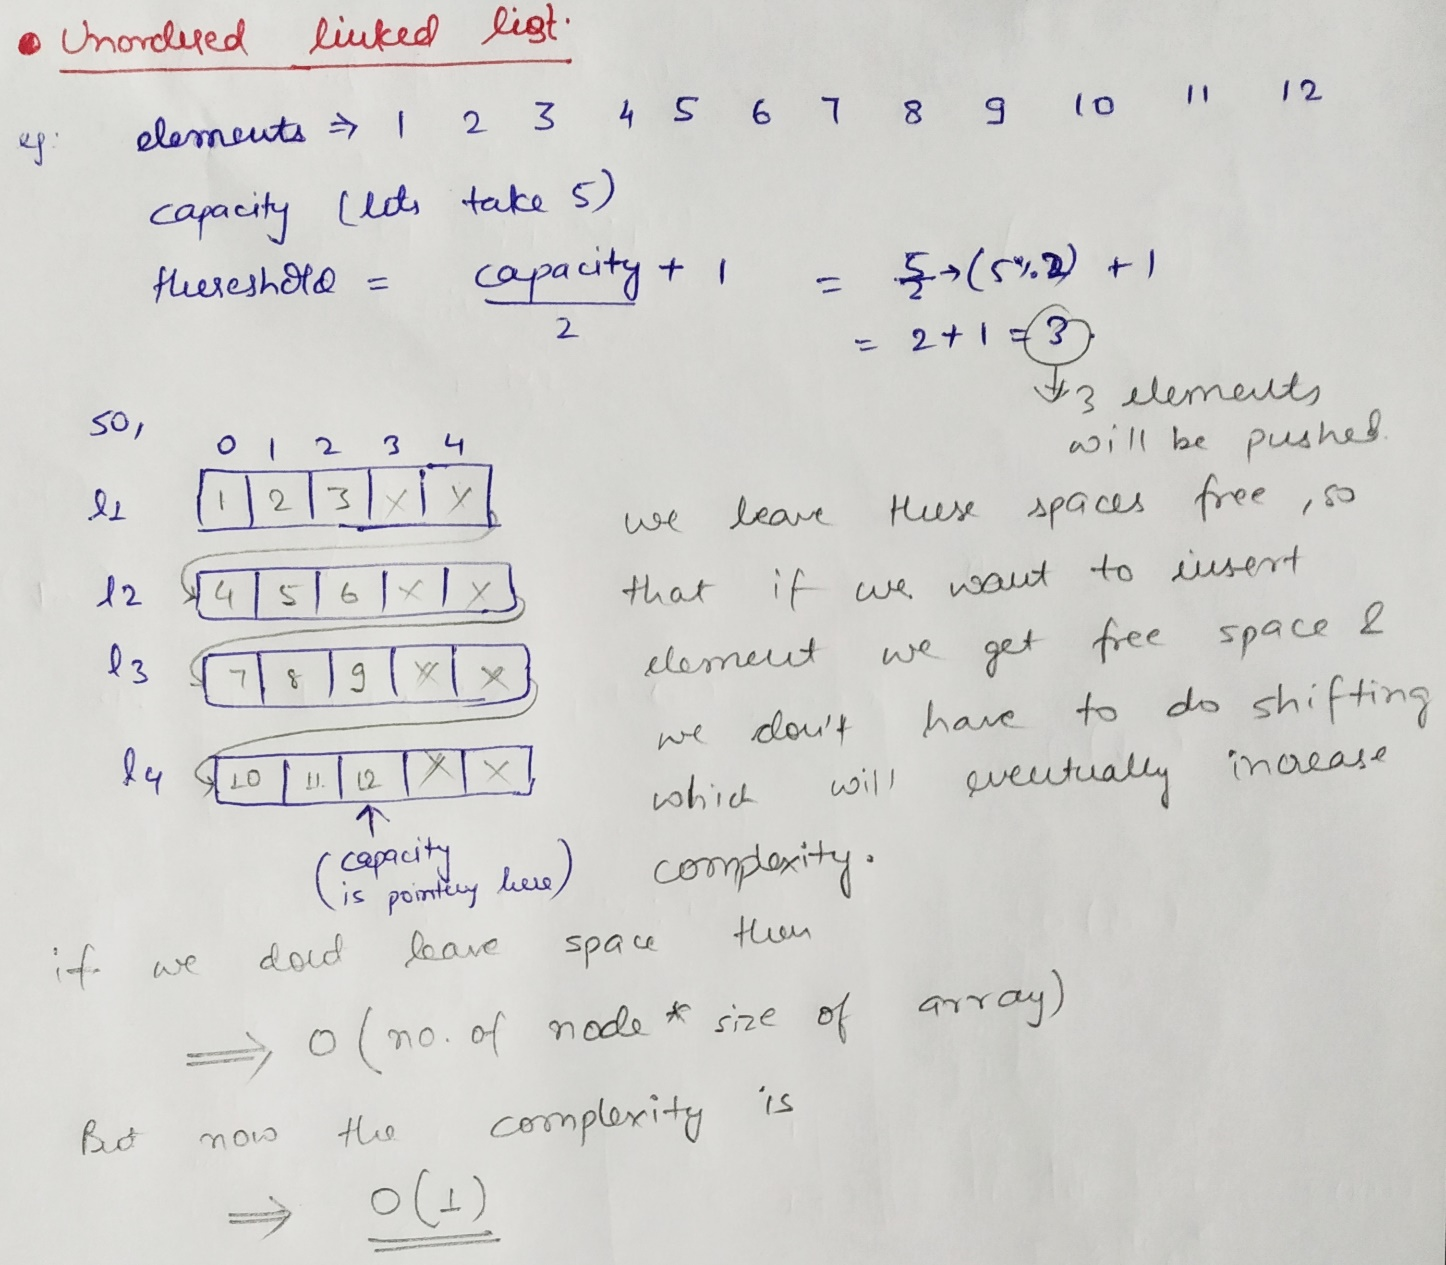 • Unordered linked list.
eg: elements ⇒ 1 2 3 4 5 6 7 8 9 10 11 12
capacity (lets take 5)
threshold = capacity/2 + 1 = 5/2 → (5%2) + 1
= 2 + 1 = 3
3 elements
will be pushed.
so,
0 1 2 3 4
l1 1 2 3 x x
l2 4 5 6 x x
l3 7 8 9 x x
l4 10 11. 12 x x
↑
(capacity
is pointing here)
we leave these spaces free, so
that if we want to insert
element we get free space &
we don't have to do shifting
which will eventually increase
complexity.
if we dont leave space then
⇒ O(no. of node * size of array)
But now the complexity is
⇒ O(1)